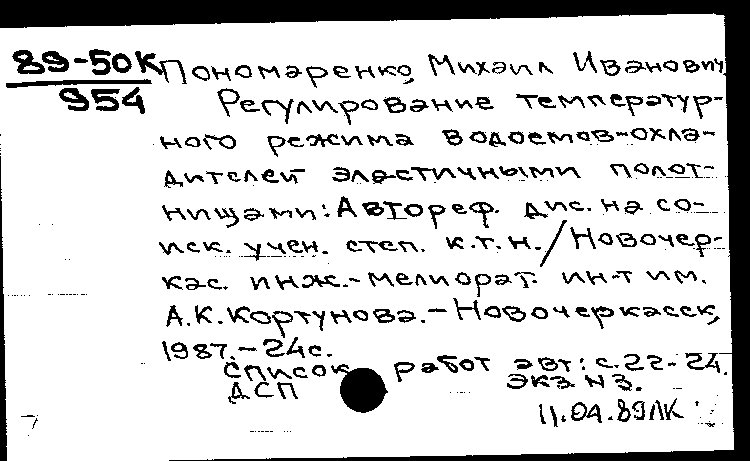 89-50К
954
Пономаренко, Михаил Иванович
Регулирование температур-
ного режима водоемов-охла-
дителей эластичными полот-
нищами: Автореф. дис. на со-
иск. учен. степ. к.т.н. / Новочер-
кас. инж.-мелиорат. ин-т им.
А.К. Кортунова. - Новочеркасск,
1987. - 24с.
Список работ авт: с. 22-24.
ДСП экз N 3.
11.04.89ЛК